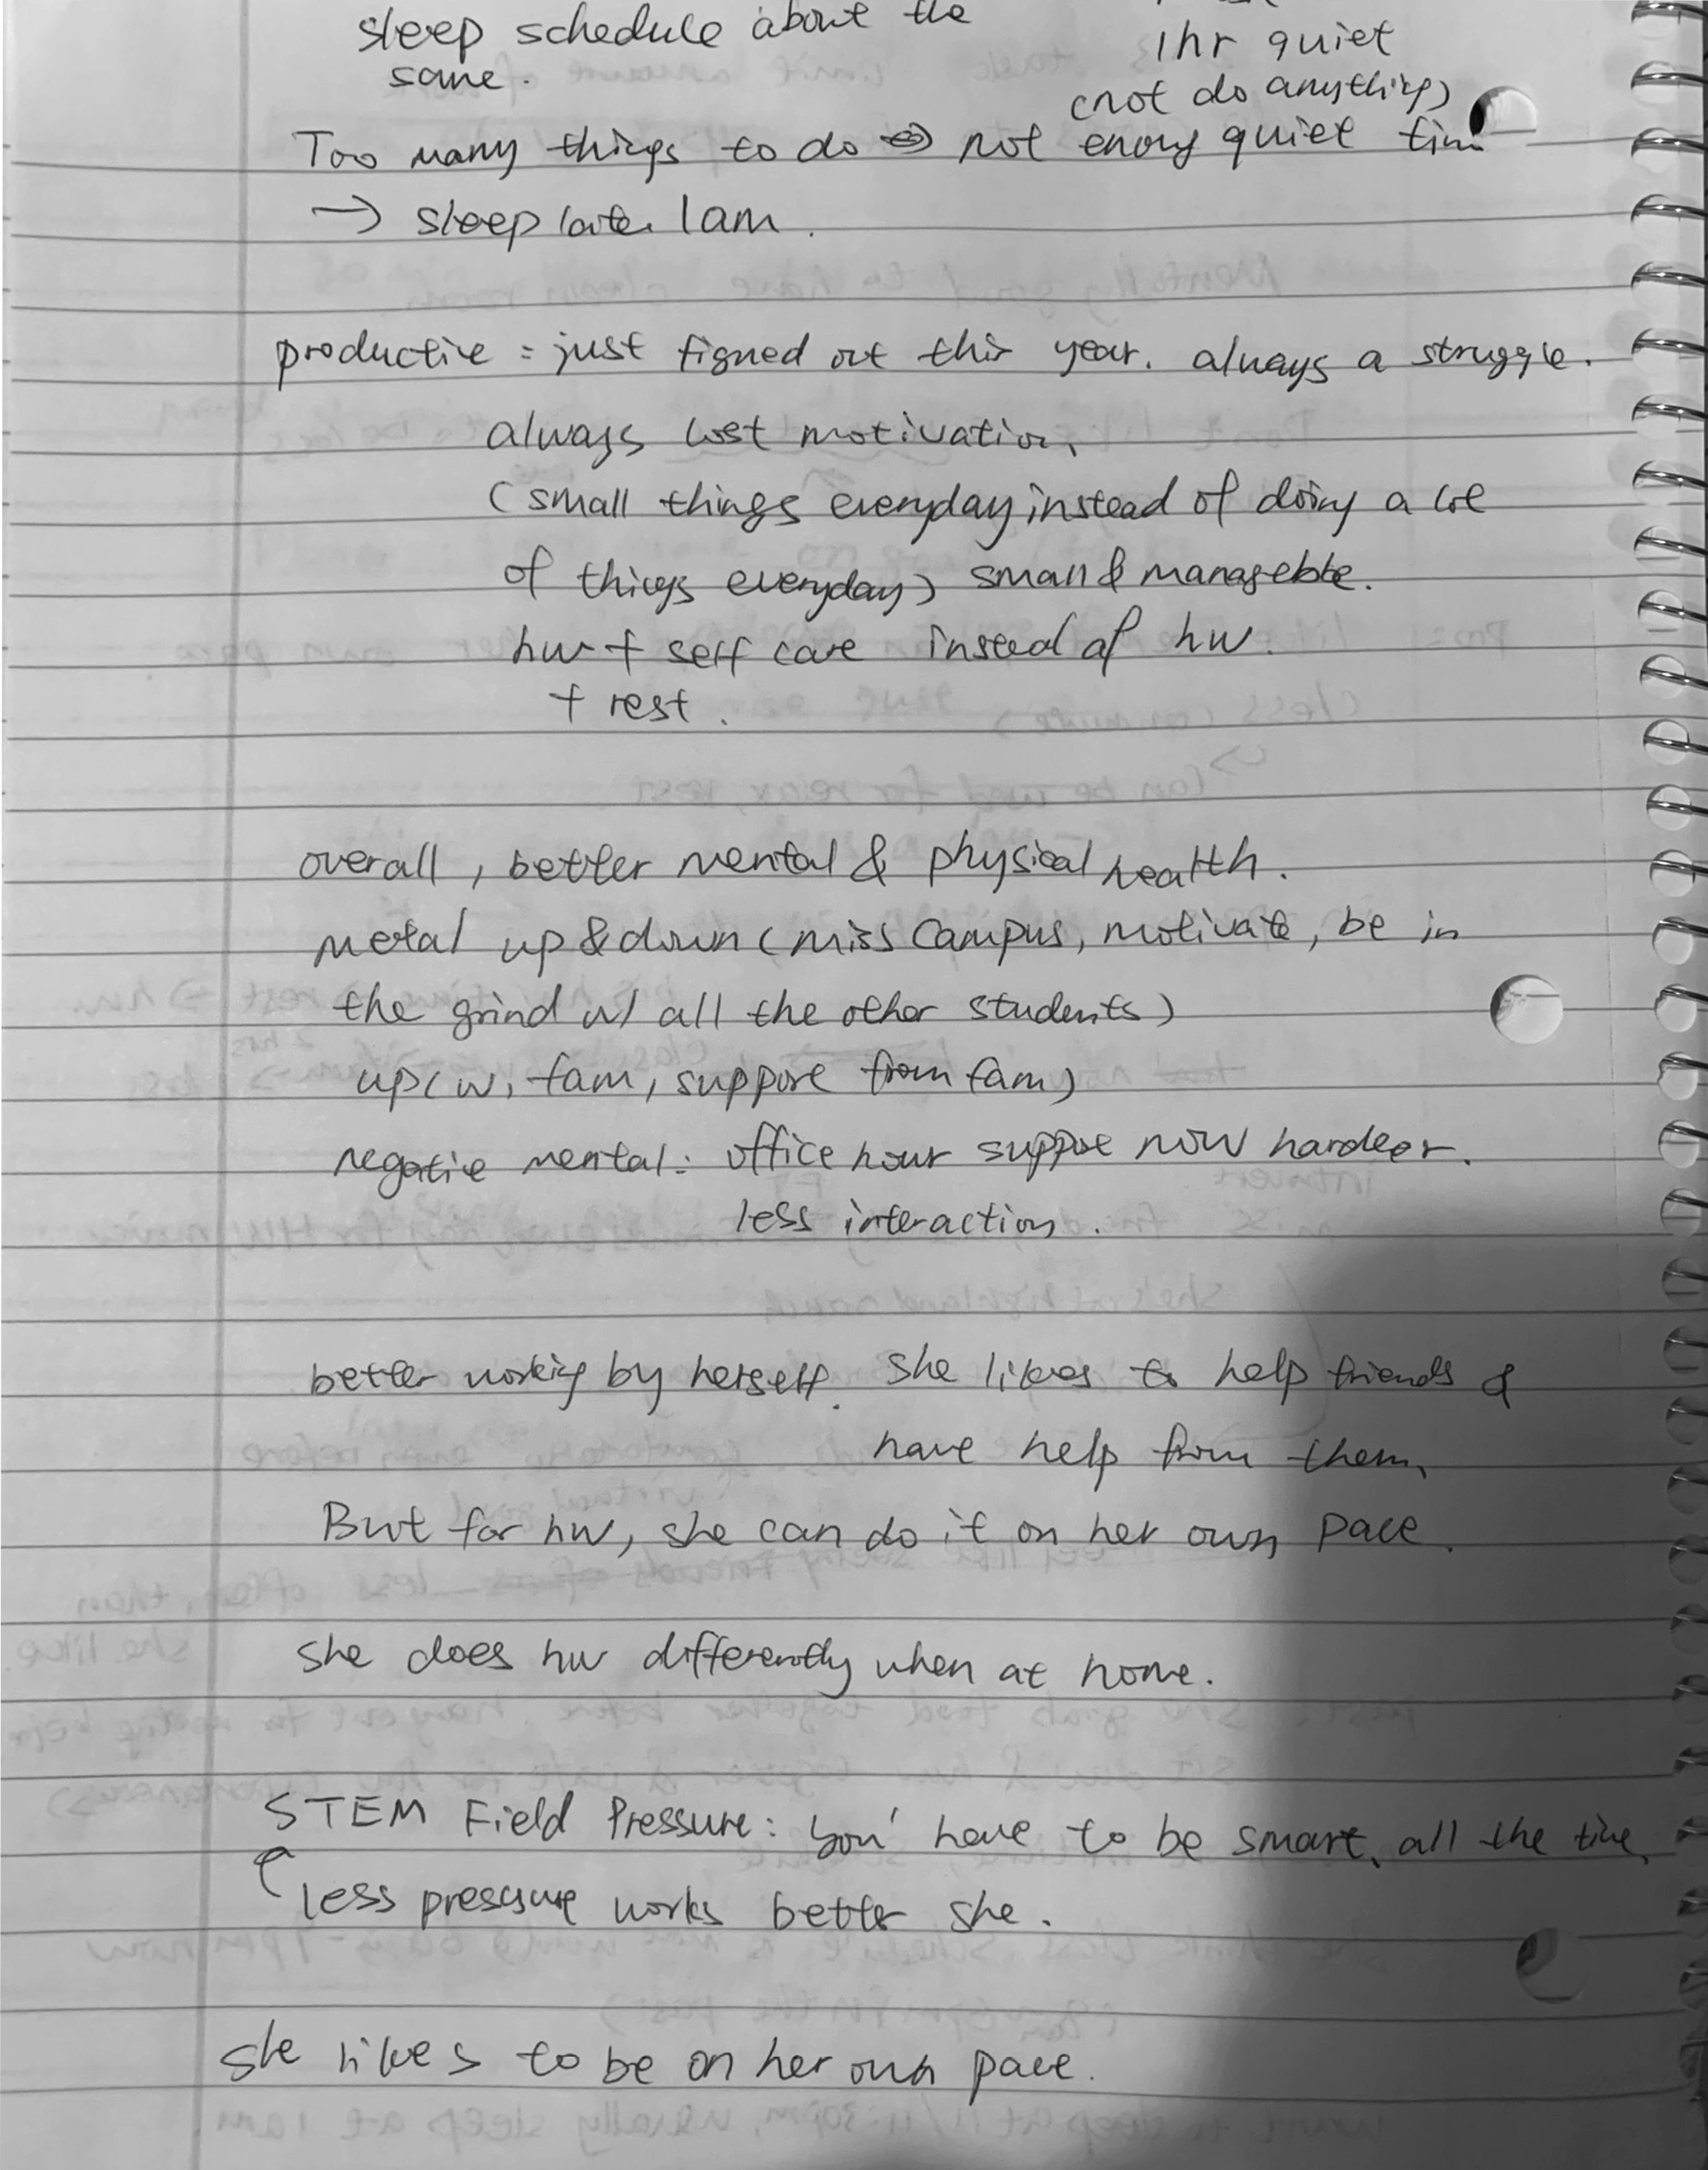 sleep schedule about the
same.
1hr quiet
(not do anything)
Too many things to do <=> not enoug quiet tim
→ sleep late 1am.
productive = just figued out this year. always a struggle.
always lost motivation,
(small things everyday instead of doing a lot
of things everyday) small & manageble.
hw + self care instead of hw.
+ rest.
overall, better mental & physical health.
metal up & down (miss campus, motivate, be in
the grind w/ all the other students)
up (w, fam, support from fam)
negative mental: office hour support now hardeer.
less interaction.
better working by herself. she likes to help friends &
have help from them,
But for hw, she can do it on her own pace.
she does hw differently when at home.
STEM Field Pressure: you' have to be smart, all the time,
less pressure works better she.
she likes to be on her own pace.